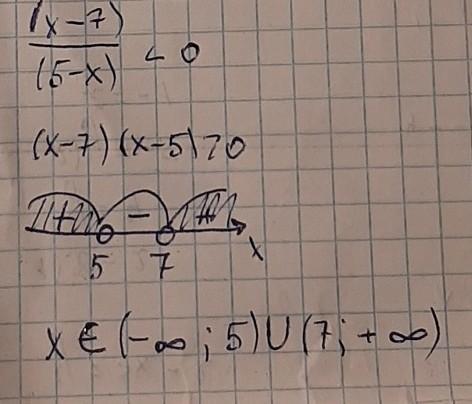 (x-7)
(5-x) < 0
(x-7)(x-5)>0
+ - +
5 7 x
x ∈ (-∞; 5) ∪ (7; +∞)